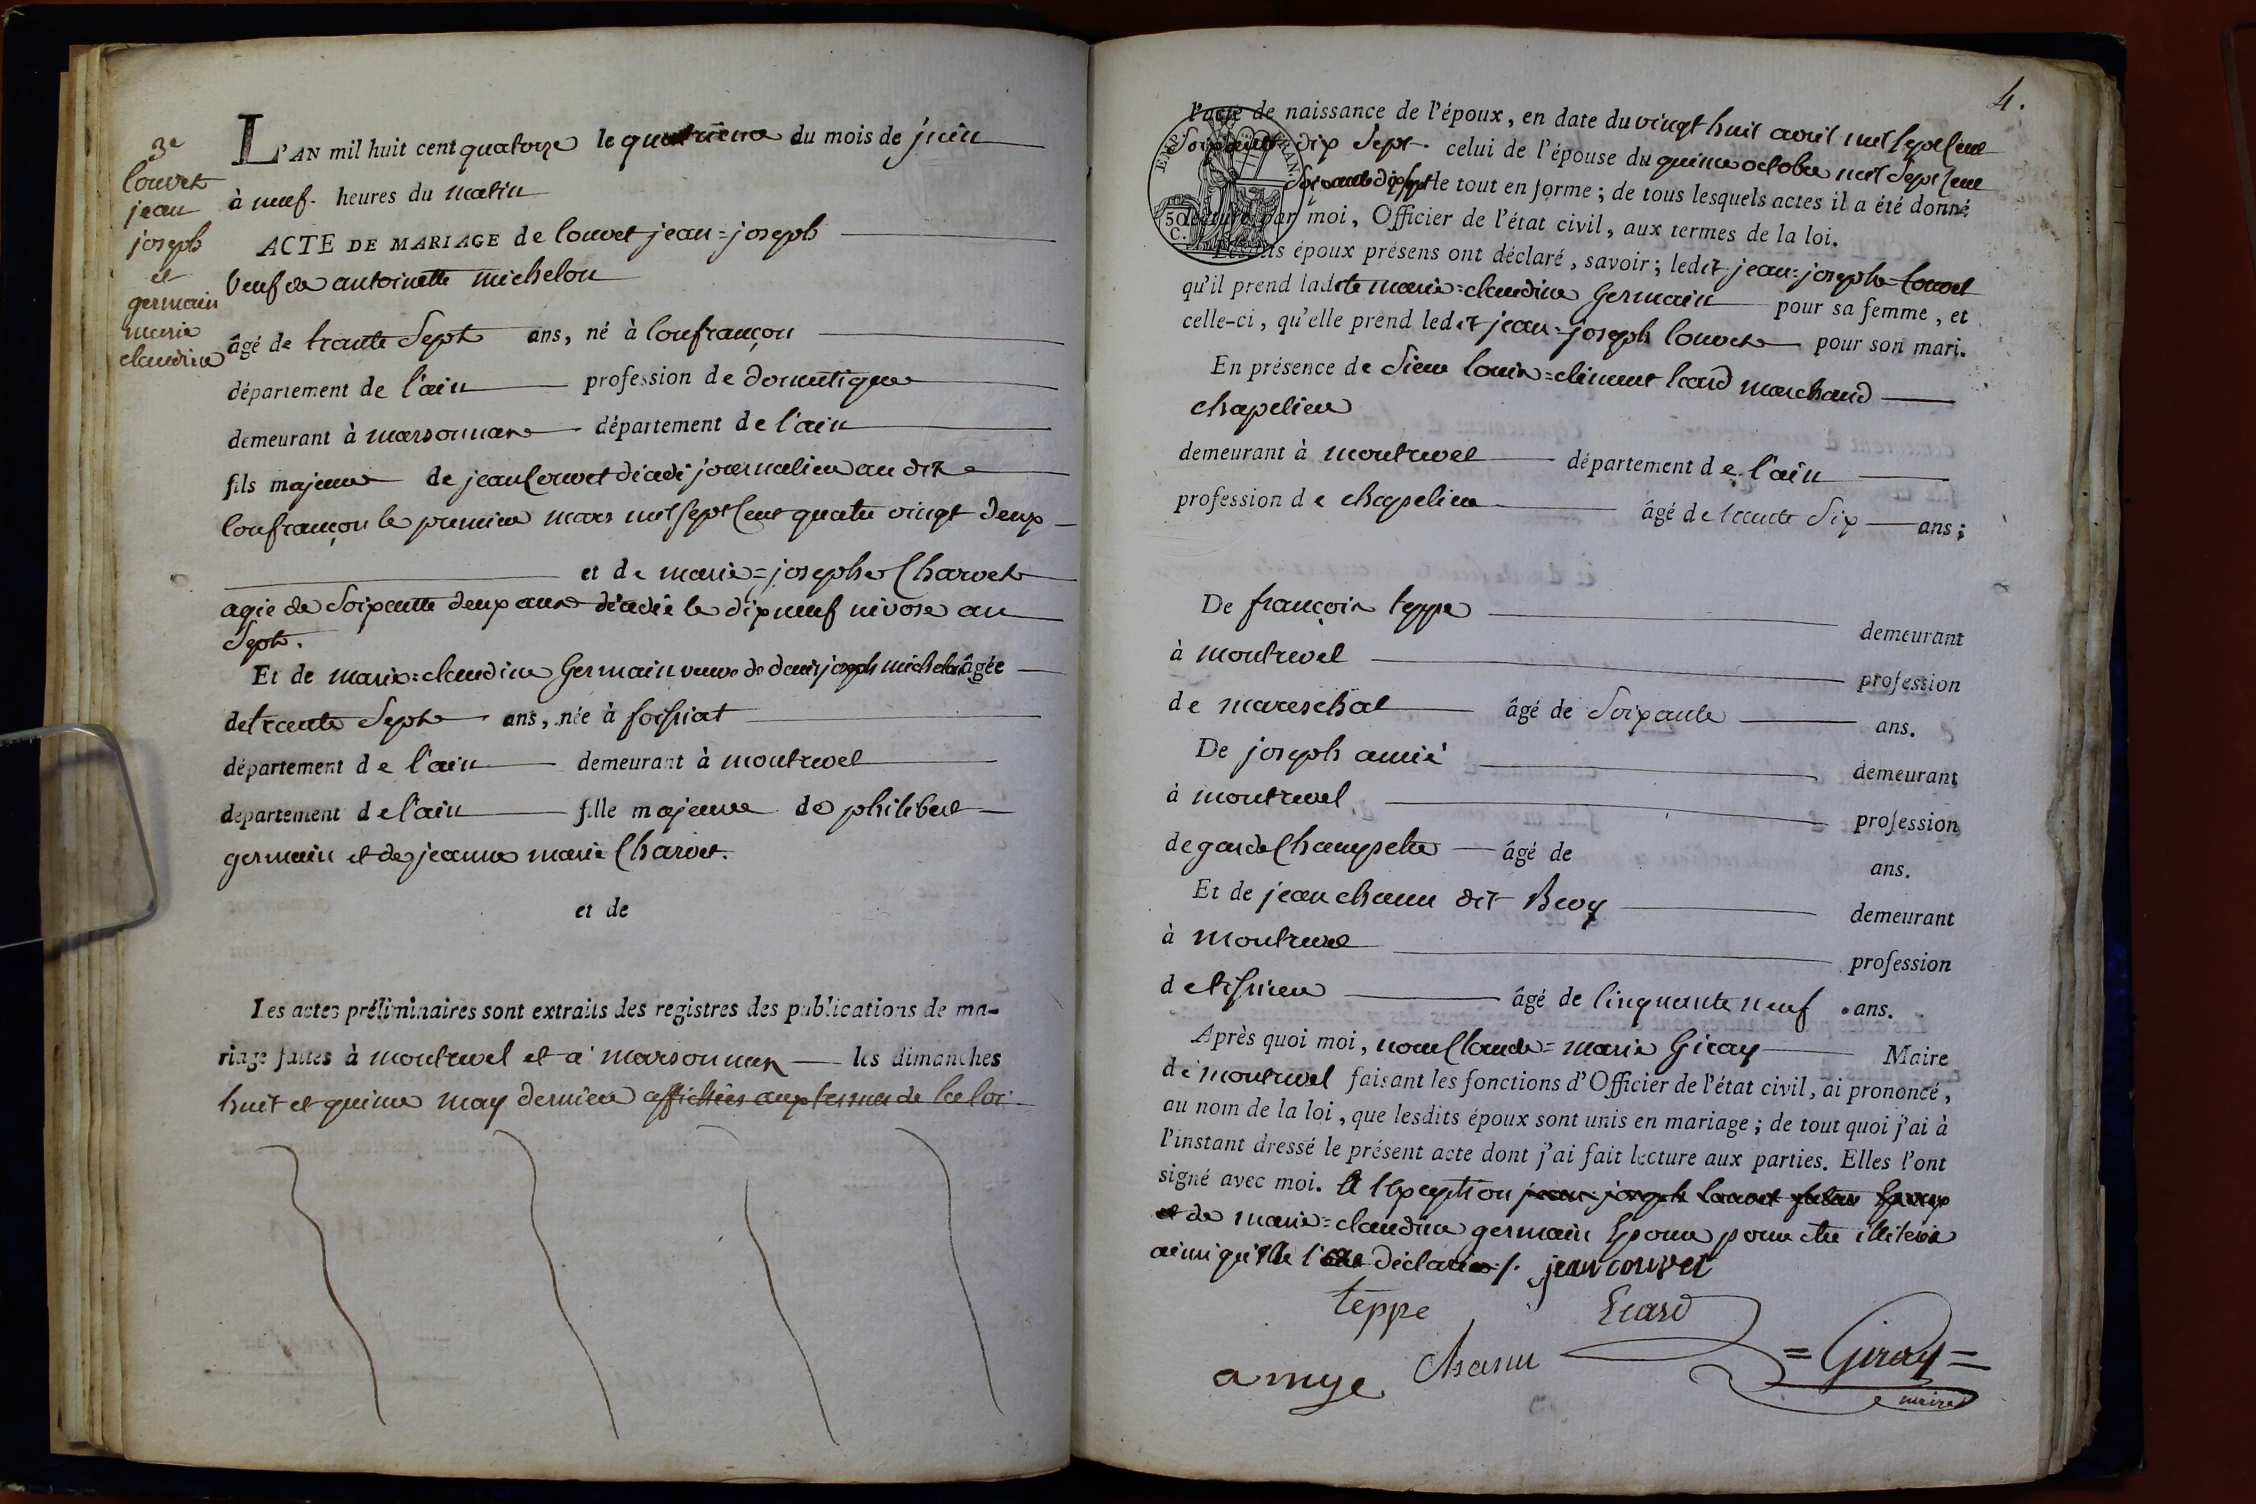 3e
louvet
jean
joseph
et
germain
marie
claudine
L'AN mil huit cent quatorze le quatrieme du mois de juin
à neuf heures du matin
ACTE DE MARIAGE de louvet jean=joseph
veuf de antoinette michelon
âgé de trante sept ans, né à confrançon
département de l'ain profession de domestique
demeurant à marsonnax département de l'ain
fils majeur de jean louvet décédé journalier au dit
confrançon le premier mars mil sept cent quatre vingt deux
et de marie=josephe Charvet
agée de soixante deux ans décédée le dix neuf nivose an
sept.
Et de marie=claudine Germain veuve de denis joseph michelon âgée
de trante sept ans, née à foissiat
département de l'ain demeurant à montrevel
département de l'ain fille majeure de philibert
germain et de jeanne marie Charvet.
et de
Les actes préliminaires sont extraits des registres des publications de ma-
riage faites à montrevel et a marsonnax les dimanches
huit et quinze may dernier affichées aux termes de la loi
4.
l'acte de naissance de l'époux, en date du vingt huit avril mil sept cent
soixante dix sept celui de l'épouse du quinze octobre mil sept cent
soixante dix sept le tout en forme; de tous lesquels actes il a été donné
lecture par moi, Officier de l'état civil, aux termes de la loi.
Lesdits époux présens ont déclaré, savoir; ledit jean=joseph louvet
qu'il prend ladite marie=claudine Germain pour sa femme, et
celle-ci, qu'elle prend ledit jean=joseph louvet pour son mari.
En présence de sieur louis=climent Ecard marchand
chapelier
demeurant à montrevel département de l'ain
profession de chapelier âgé de trante six ans;
De françois teppe demeurant
à montrevel profession
de mareschal âgé de soixante ans.
De joseph amié demeurant
à montrevel profession
de garde Champetre âgé de ans.
Et de jean chanu dit demeurant
à montrevel profession
de tissier âgé de Cinquante neuf ans.
Après quoi moi, nous Claude=marie Giray Maire
de montrevel faisant les fonctions d'Officier de l'état civil, ai prononcé,
au nom de la loi, que lesdits époux sont unis en mariage; de tout quoi j'ai à
l'instant dressé le présent acte dont j'ai fait lecture aux parties. Elles l'ont
signé avec moi. A l'exception jean=joseph louvet futur Epoux
et de marie=claudine germain Epouse pour etre illiterée
ainsi qu'elle l'a declaré ./. jean louvet
teppe Ecard
amye Chanu =Giray=
maire
EMP. FRAN.
50
C.